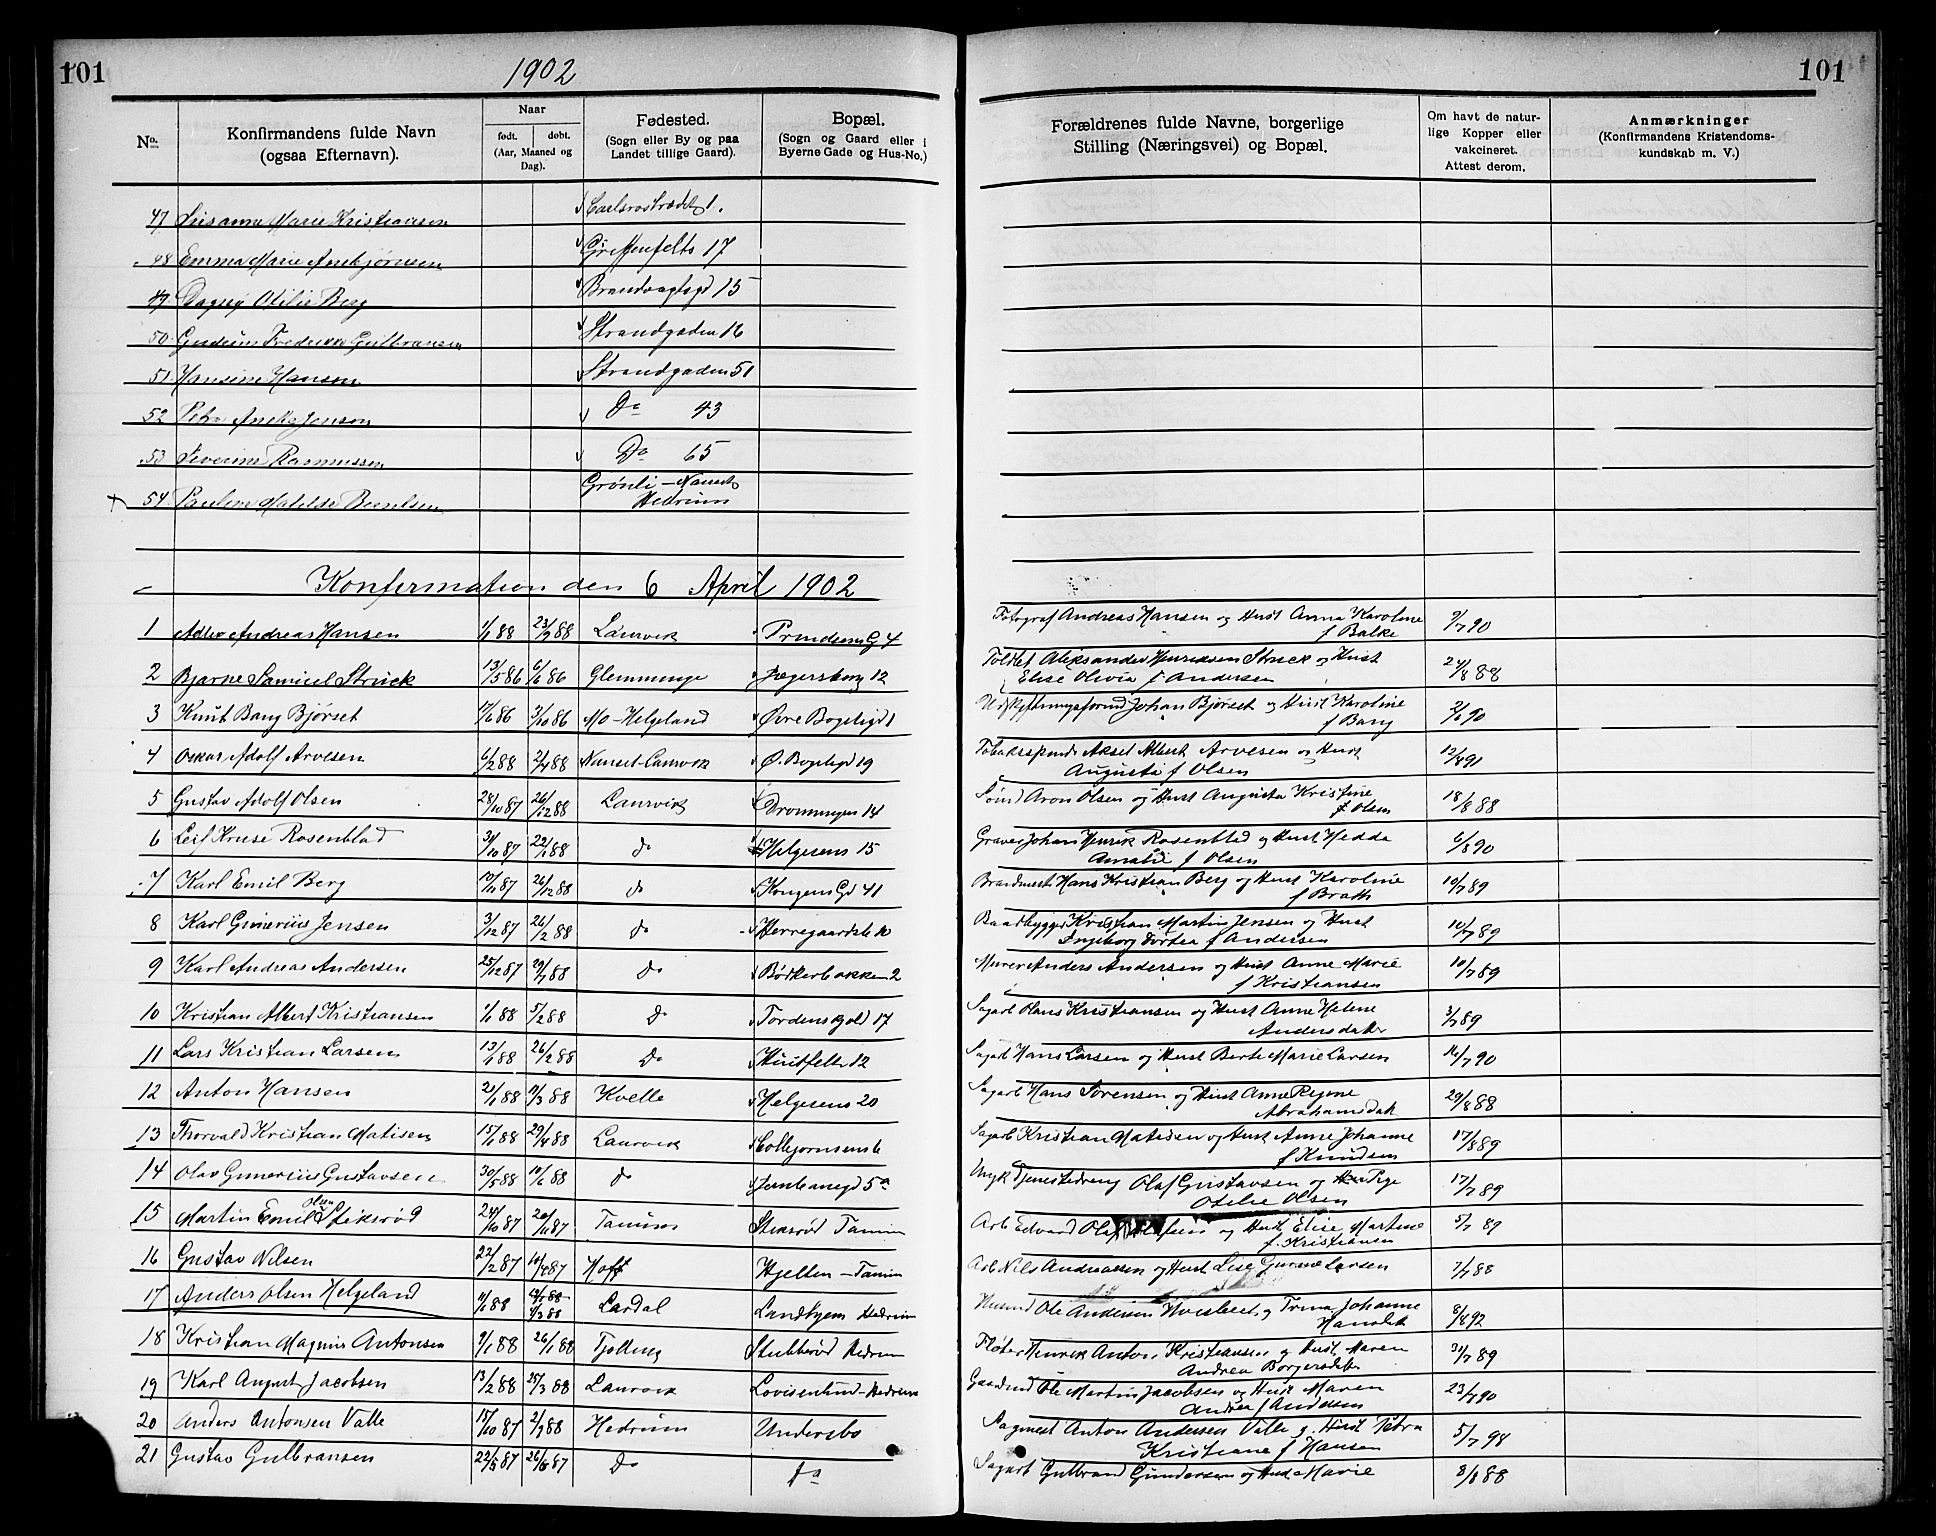 101
1902
101
No.
Konfirmandens fulde Navn
(ogsaa Efternavn).
Naar
født. døbt.
(Aar, Maaned og
Dag).
Fødested.
(Sogn eller By og paa
Landet tillige Gaard).
Bopæl.
(Sogn og Gaard eller i
Byerne Gade og Hus-No.)
Forældrenes fulde Navne, borgerlige
Stilling (Næringsvei) og Bopæl.
Om havt de natur-
lige Kopper eller
vakcineret.
Attest derom.
Anmærkninger
(Konfirmandens Kristendoms-
kundskab m. V.)
47 Susanne Marie Kristiansen
48 Emma Marie Arnebjørnsen Griffenfelts 17
49 Dagny Otilie Berg Brandvagtsgd 15
50 Gudrun Fredrikke Gulbransen Strandgaden 16
51 Hansine Hansen Strandgaden 51
52 Petra Jensen Do 43
53 Severine Rasmussen Do 65
54 Pauline Matilde Berntsen Grönli - Nanset
Hedrum
Konfirmation den 6 April 1902
1 Andreas Hansen 1/1 88 23/9 88 Laurvik Prindsens G 4 Fotograf Andreas Hansen og Hust Anna Karoline
f Balke 9/7 90
2 Bjarne Samuel Struck 13/5 86 6/6 86 Glemminge Jegersborg 12 Toldbt Aleksander Henriksen Struck og Hust
Elise Olivia f Andersen 24/8 88
3 Knut Bang Bjørset 17/6 86 3/10 86 Mo-Helgeland Øvre Bøgeligd 1 Johan Bjørset og Hust Karoline
f Bang 3/6 90
4 Oskar Adolf Arvesen 6/2 88 2/4 88 Nanset-Laurvik Ø. Bøgeligd 19 Aksel Albert Arvesen og Hust
Augusta f Olsen 12/8 91
5 Gustav Adolf Olsen 28/10 87 26/12 88 Laurvik Dronningens 14 Sømd Aron Olsen og Hust Augusta Kristine
f Olsen 18/8 88
6 Leif Kruse Rosenblad 31/10 87 22/1 88 do Helgesens 15 Graver Johan Henrik Rosenblad og Hust Hedda
Amalie f Olsen 6/8 90
7 Karl Emil Berg 10/11 87 26/12 88 do Kongens Gd 41 Brandmest Hans Kristian Berg og Hust Karoline
f Brath 10/7 89
8 Karl Gunerius Jensen 3/12 87 26/2 88 do Herregaardsb 10 Baadbygger Kristian Martin Jensen og Hust
Ingeborg Dortea f Andersen 10/7 89
9 Karl Andreas Andersen 25/12 87 29/7 88 do Bödkerbakken 2 Murer Anders Andersen og Hust Anne Marie
f Kristiansen 10/7 89
10 Kristian Albert Kristiansen 1/1 88 5/2 88 do Tordenskjold 17 Sagarb Olaus Kristiansen og Hust Anne Helene
Andersdatter 3/7 89
11 Lars Kristian Larsen 13/1 88 26/2 88 Do Huitfelts 12 Sagarb Hans Larsen og Hust Berte Marie Larsen 16/7 90
12 Anton Hansen 21/1 88 11/3 88 Kvelle Helgesens 20 Sagarb Hans Sørensen og Hust Anne Regine
Abrahamsdat 29/8 88
13 Thorvald Kristian Matisen 15/1 88 29/4 88 Laurvik Colbjørnsens 6 Sagarb Kristian Matisen og Hust Anne Johanne
f Knudsen 17/8 89
14 Olav Gunerius Gustavsen 30/5 88 10/6 88 do Jernbanegd 5a Ungk Tjenestedreng Olaf Gustavsen og Pige
Odelie Olsen 17/7 89
15 Martin Emil Olsen Stiksrød 24/10 87 20/11 87 Tanum Stiksrød Tanum Arb Edvard Olaf og Hust Elise Martine
f. Kristiansen 5/7 89
16 Gustav Nilsen 22/2 87 10/4 87 Hoff Hjelten - Tanum Arb Nils Andreassen og Hust Lise Gurine Larsen 7/7 88
17 Anders Olsen Helgeland 11/1 88 4/3 88 Lardal Landbyens Hedrum Husmd Ole Andersen og Trine Johanne
Hansdat 8/8 92
18 Kristian Magnus Antonsen 9/1 88 26/1 88 Tjölling Stubberød Hedrum Fløter Henrik Anton Kristiansen og Hust Maren
Andrea Borgersdatter 31/7 89
19 Karl August Jacobsen 13/2 88 25/3 88 Laurvik Lovisenlund-Hedrum Gaardmd Ole Martin Jacobsen og Hust Maren
Andrea f Andersen 23/7 90
20 Anders Antonsen Valle 15/10 87 2/7 88 Hedrum Undersbo Sagmest Anton Andersen Valle og Hust Petra
Kristiane f Hansen 5/7 98
21 Gustav Gulbransen 22/5 87 26/6 87 Do Do Sagarb Gulbrand Gundersen og Hust Marie 8/8 88